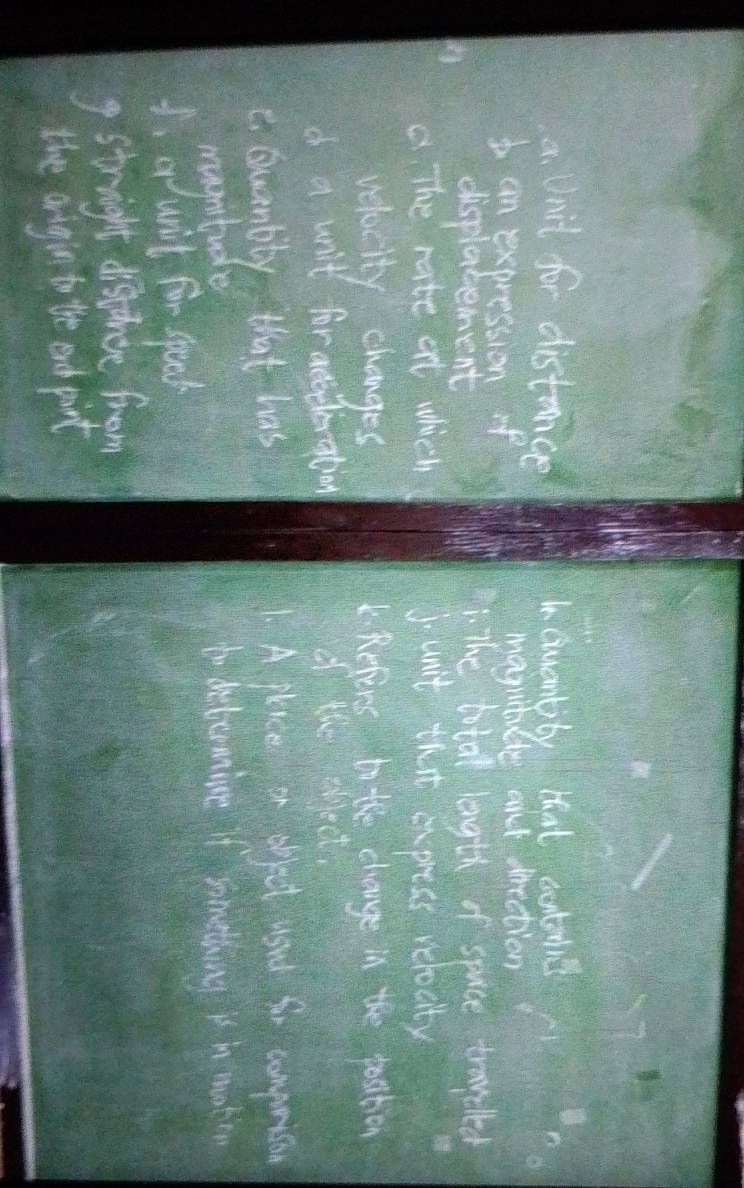 a. Unit for distance
b an expression of
displacement
c. The rate at which
velocity changes
d a unit for acceleration
e. Quantity that has
magnitude
f. a unit for speed
g straight distance from
the origin to the end point
h. Quantity that contains
magnitude and direction
i. The total length of space travelled
j. unit that express velocity
k. Refers to the change in the position
of the object.
l. A place or object used for comparison
to determine if something is in motion